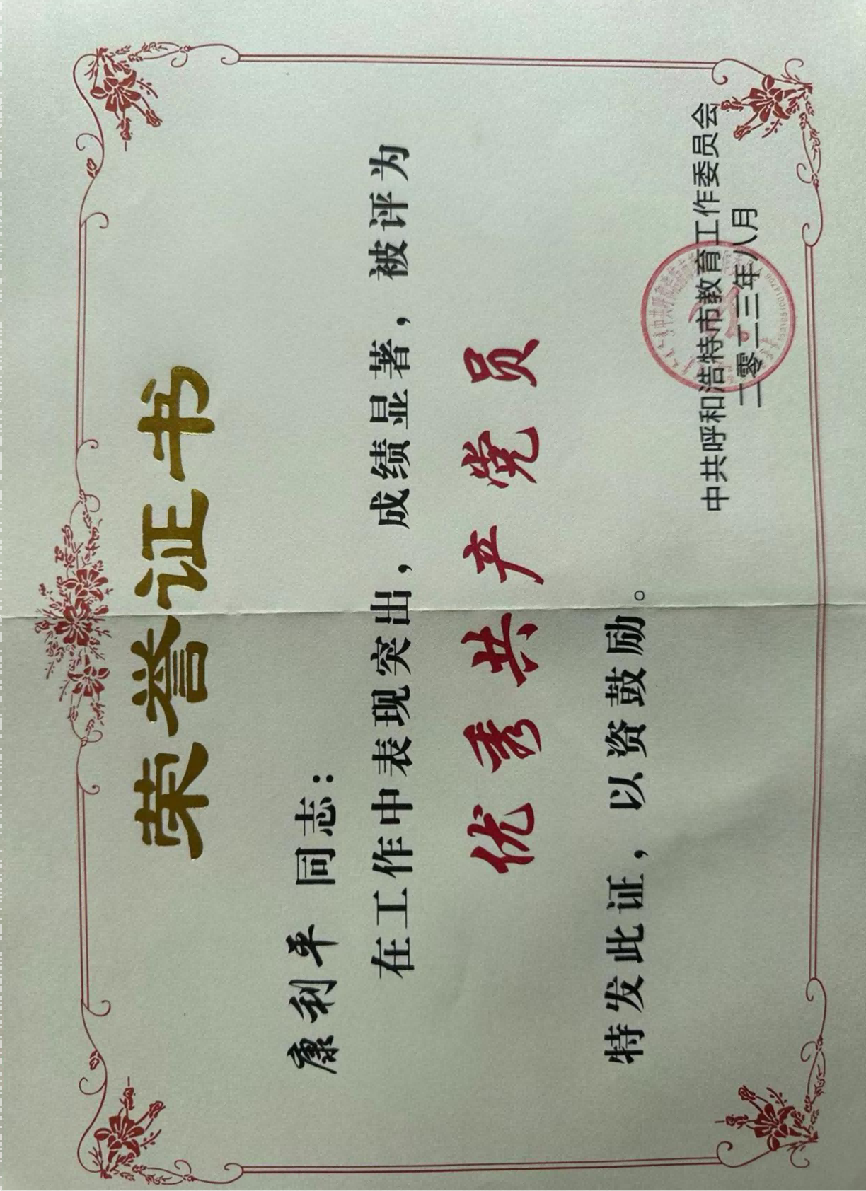 荣誉证书
康利平 同志：
在工作中表现突出，成绩显著，被评为
优秀共产党员
特发此证，以资鼓励。
中共呼和浩特市教育工作委员会
二零二三年八月